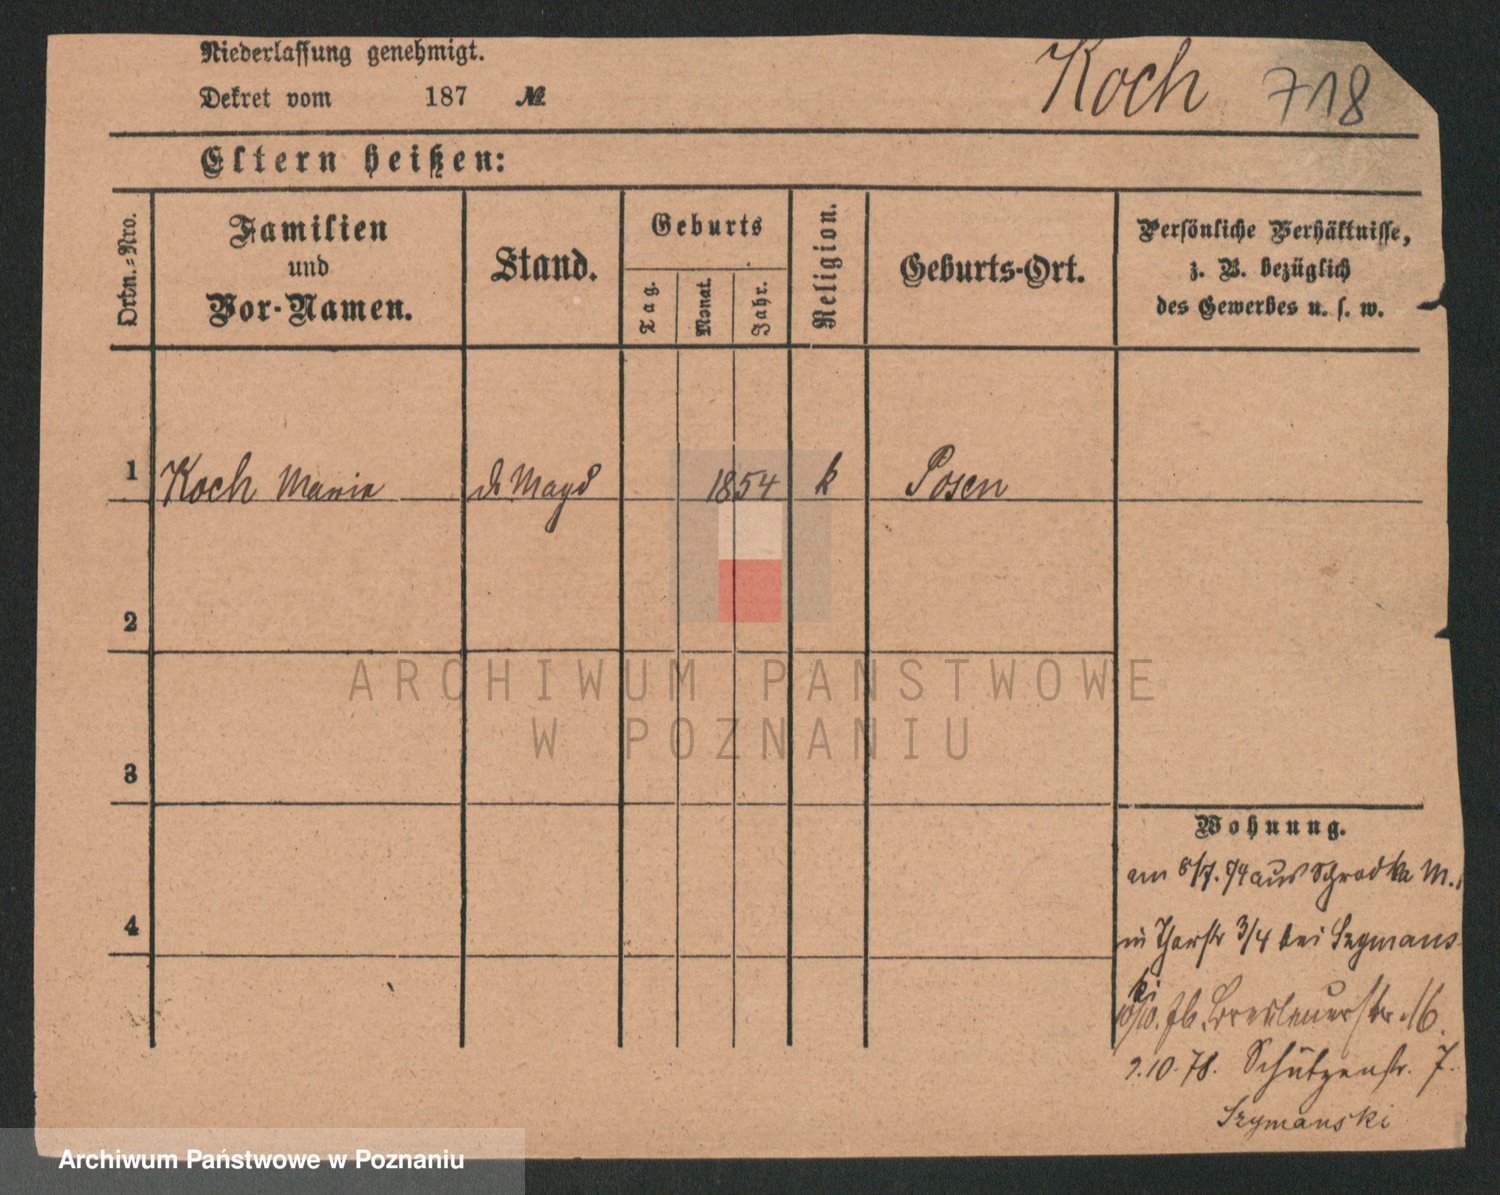 Niederlassung genehmigt.
Dekret vom 187 №
Koch 718
Eltern heißen:
Ordn.-Nro.
Familien
und
Vor-Namen.
Stand.
Geburts
Tag.
Monat.
Jahr.
Religion.
Geburts-Ort.
Persönliche Verhältnisse,
z. B. bezüglich
des Gewerbes u. s. w.
1 Koch Maria d. Magd 1854 k Posen
2
3
4
Wohnung.
am 8/7. 74 aus Schrodka M.
in Thorstr 3/4 bei Szymans
ki
10/10. 76. Breslauerstr 16.
2.10.78. Schützenstr. 7.
Szymanski
ARCHIWUM PAŃSTWOWE
W POZNANIU
Archiwum Państwowe w Poznaniu